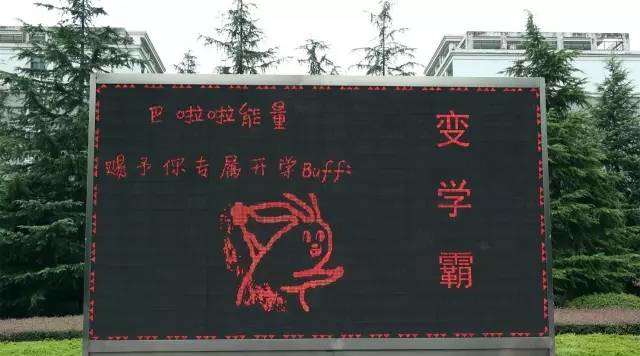 巴啦啦能量
赐予你专属开学Buff:
变学霸